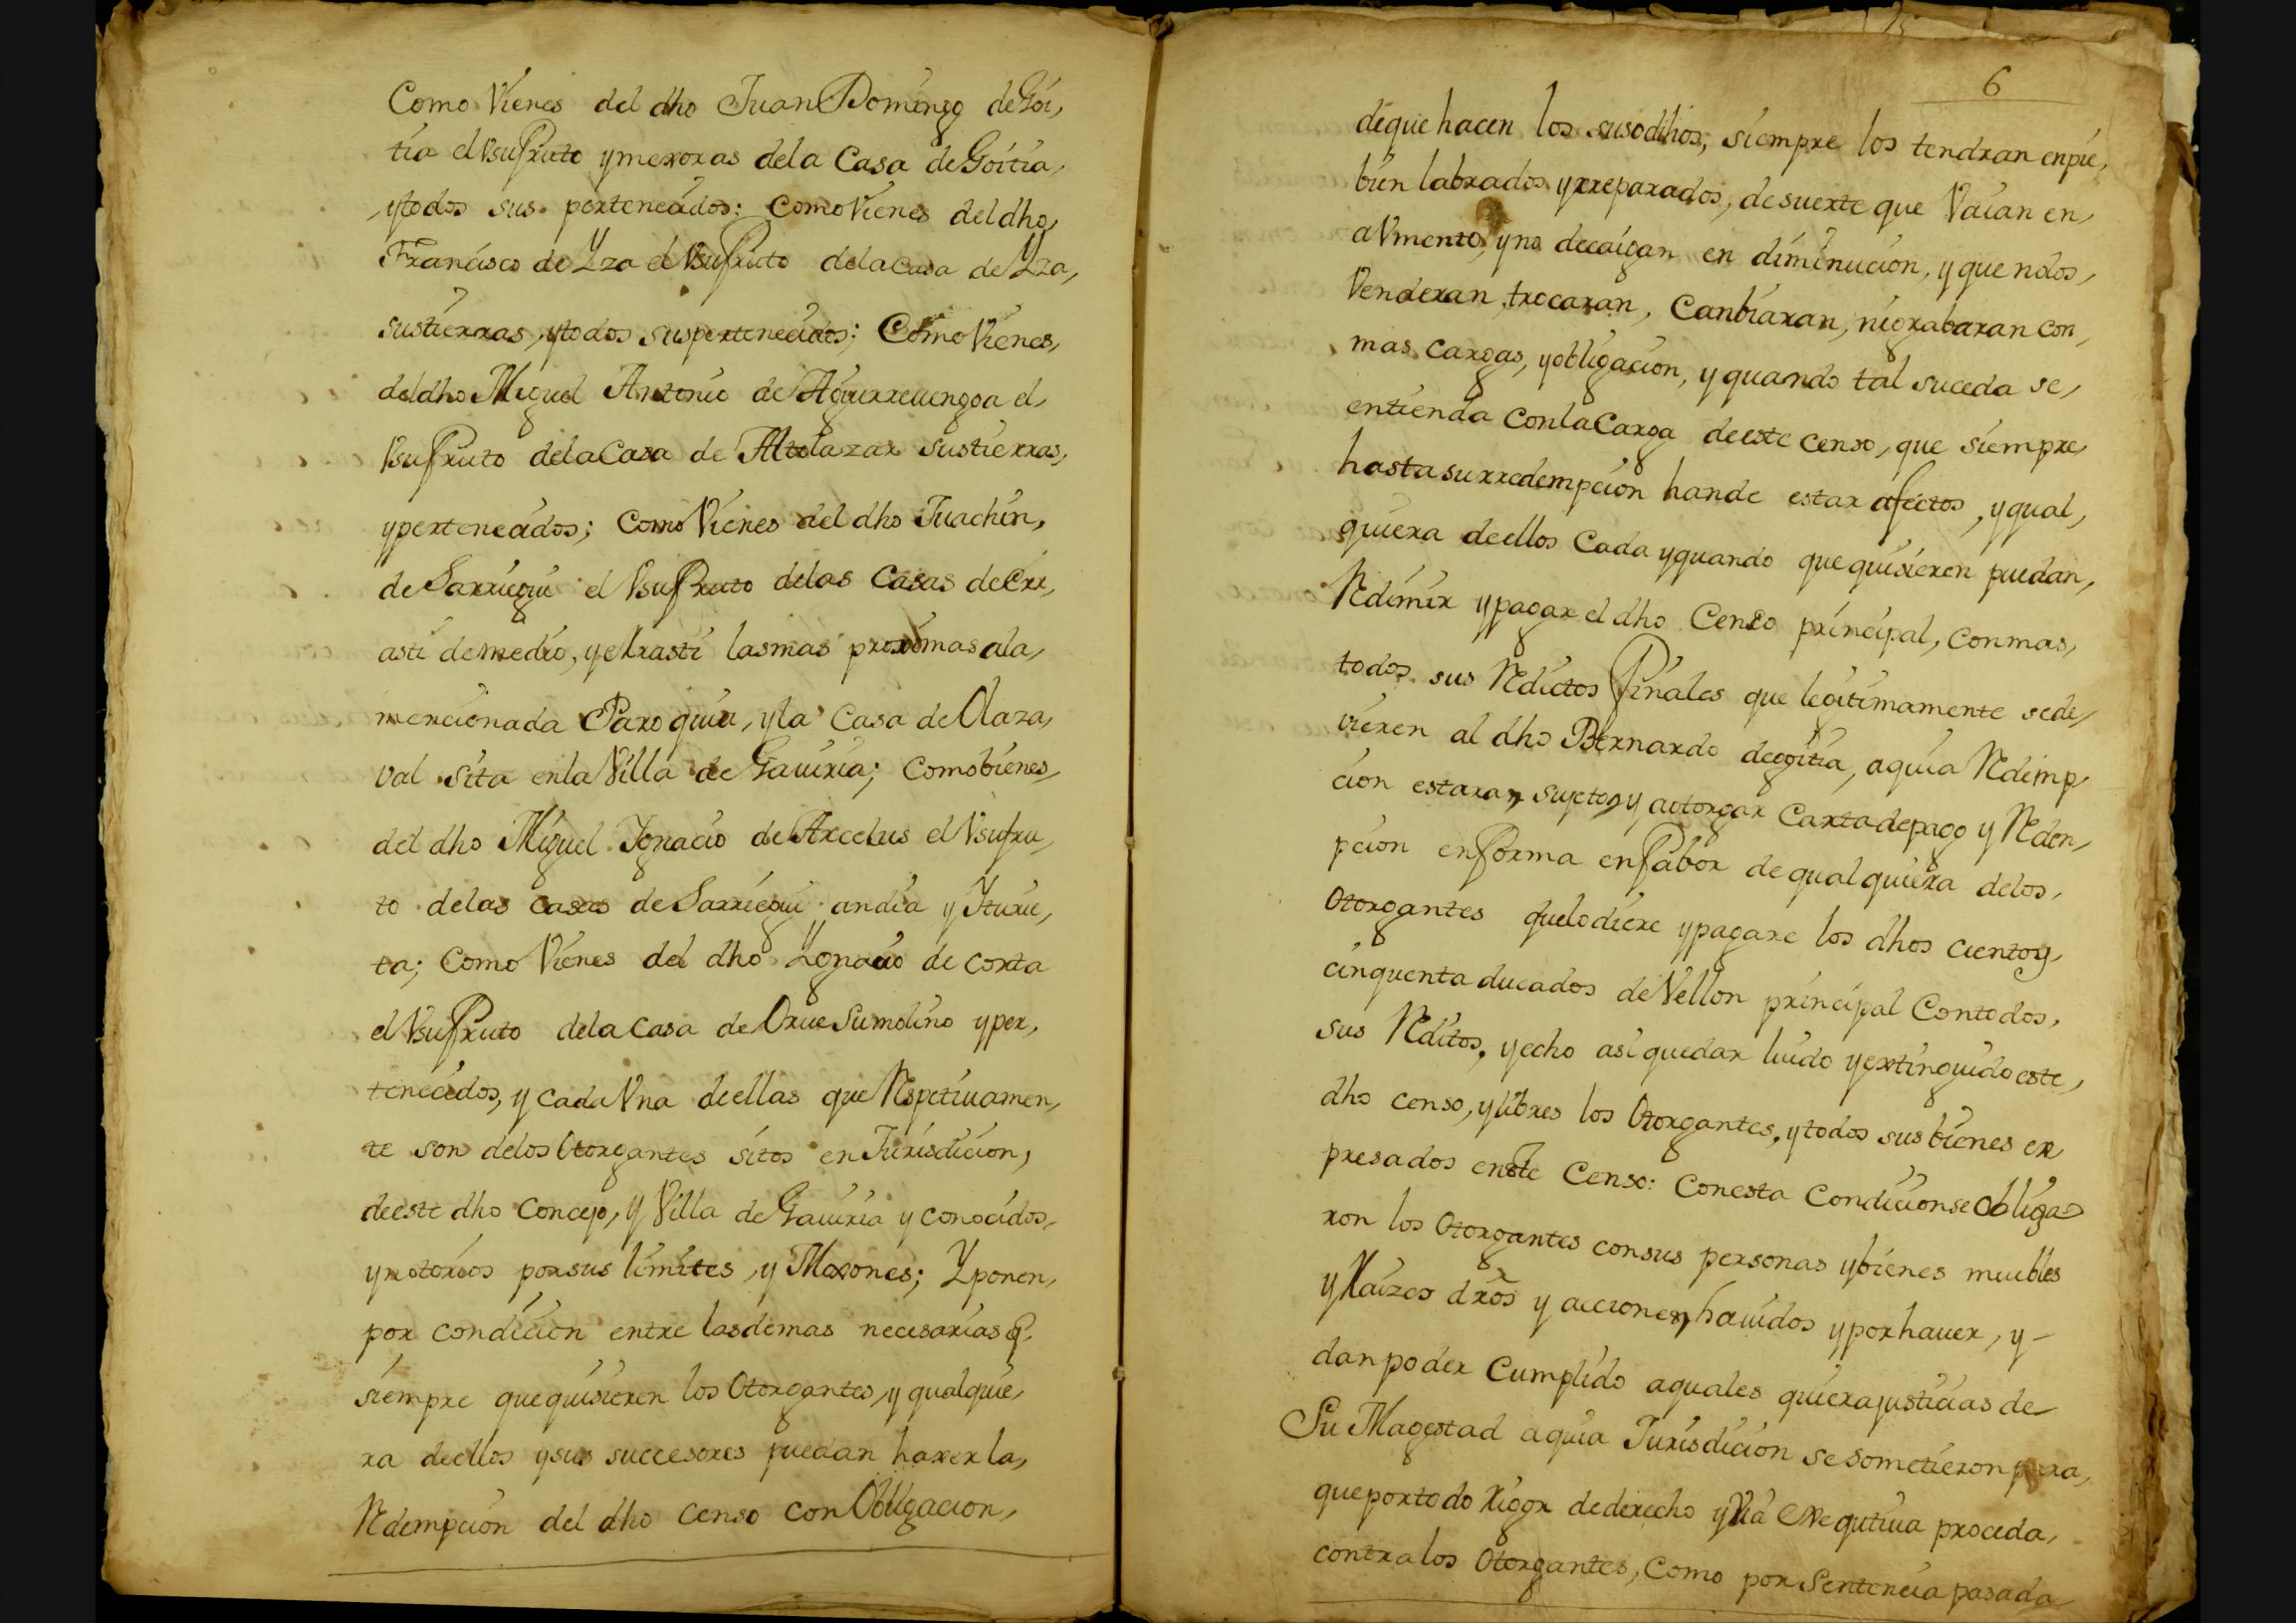 Como Vienes del dho Juan Domingo de Goi,
tia el Vsufruto y mexoras dela Casa de Goitia,
y todos sus pertenecidos: Como Vienes del dho,
Francisco de Yza el Vsufruto dela casa de Yza,
sus tierras, y todos sus pertenecidos; Como Vienes,
del dho Miguel Antonio de Aguirreuengoa el,
Vsufruto dela Casa de Altolazar sus tierras,
y pertenecidos; Como Vienes del dho Juachin,
de Sarriegui el Vsufruto delas Casas de Err,
asti de medio, y errasti las mas proximas ala,
mencionada Parroquia, y la Casa de Olaza,
val sita en la Villa de Gauiria; Como bienes,
del dho Miguel Ignacio de Arcelus el Vsufru,
to delas casas de Sarriegui andia y Yturie,
ta; Como Vienes del dho Ygnacio de corta
el Vsufruto dela Casa de Orue Su molino y per,
tenecidos, y Cada Vna de ellas que Respetiuamen,
te son delos Otorgantes sitos en Jurisdicion,
de este dho Concejo, y Villa de Gauiria y conocidos,
y notorios por sus limites, y Moxones; Y ponen,
por condicion entre las demas necesarias q.
siempre que quisieren los Otorgantes, y qualquie,
ra de ellos y sus succesores puedan haxer la,
Redempcion del dho Censo Con Obligacion,
6
de que hacen los susodihos, siempre los tendran en pie,
bien labrados y rreparados, de suerte que Vaian en,
aVmento, y no decaigan en diminucion, y que no los,
Venderan, trocaran, Canbiaran, ni grabaran con,
mas cargas, y obligacion, y quando tal suceda se,
entienda Con la Carga de este censo, que siempre,
hasta su rredempcion han de estar afectos, y qual,
quiera de ellos Cada y quando que quisieren puedan,
Redimir y pagar el dho Censo principal, con mas,
todos sus Redictos finales que legitimamente se de,
vieren al dho Bernardo de goitia, a quia Redimp
cion estaran sujetos, y aotorgar Carta de pago y Reden,
pcion en forma en fabor de qualquiera delos,
Otorgantes que lo diere y pagare los dhos ciento y,
cinquenta ducados de Vellon principal Con todos,
sus Reditos, y echo asi quedar luido y extinguido este,
dho censo, y libres los Otorgantes, y todos sus bienes ex
presados en este Censo: Con esta Condicion se obliga
ron los Otorgantes con sus personas y bienes muebles
y Raizes dros y acciones, hauidos y por hauer, y -
dan poder Cumplido a quales quiera justicias de
Su Magestad a quia Jurisdicion se sometieron para,
que por todo Rigor de derecho y Via exequtiua proceda,
contra los Otorgantes, Como por Sentencia pasada